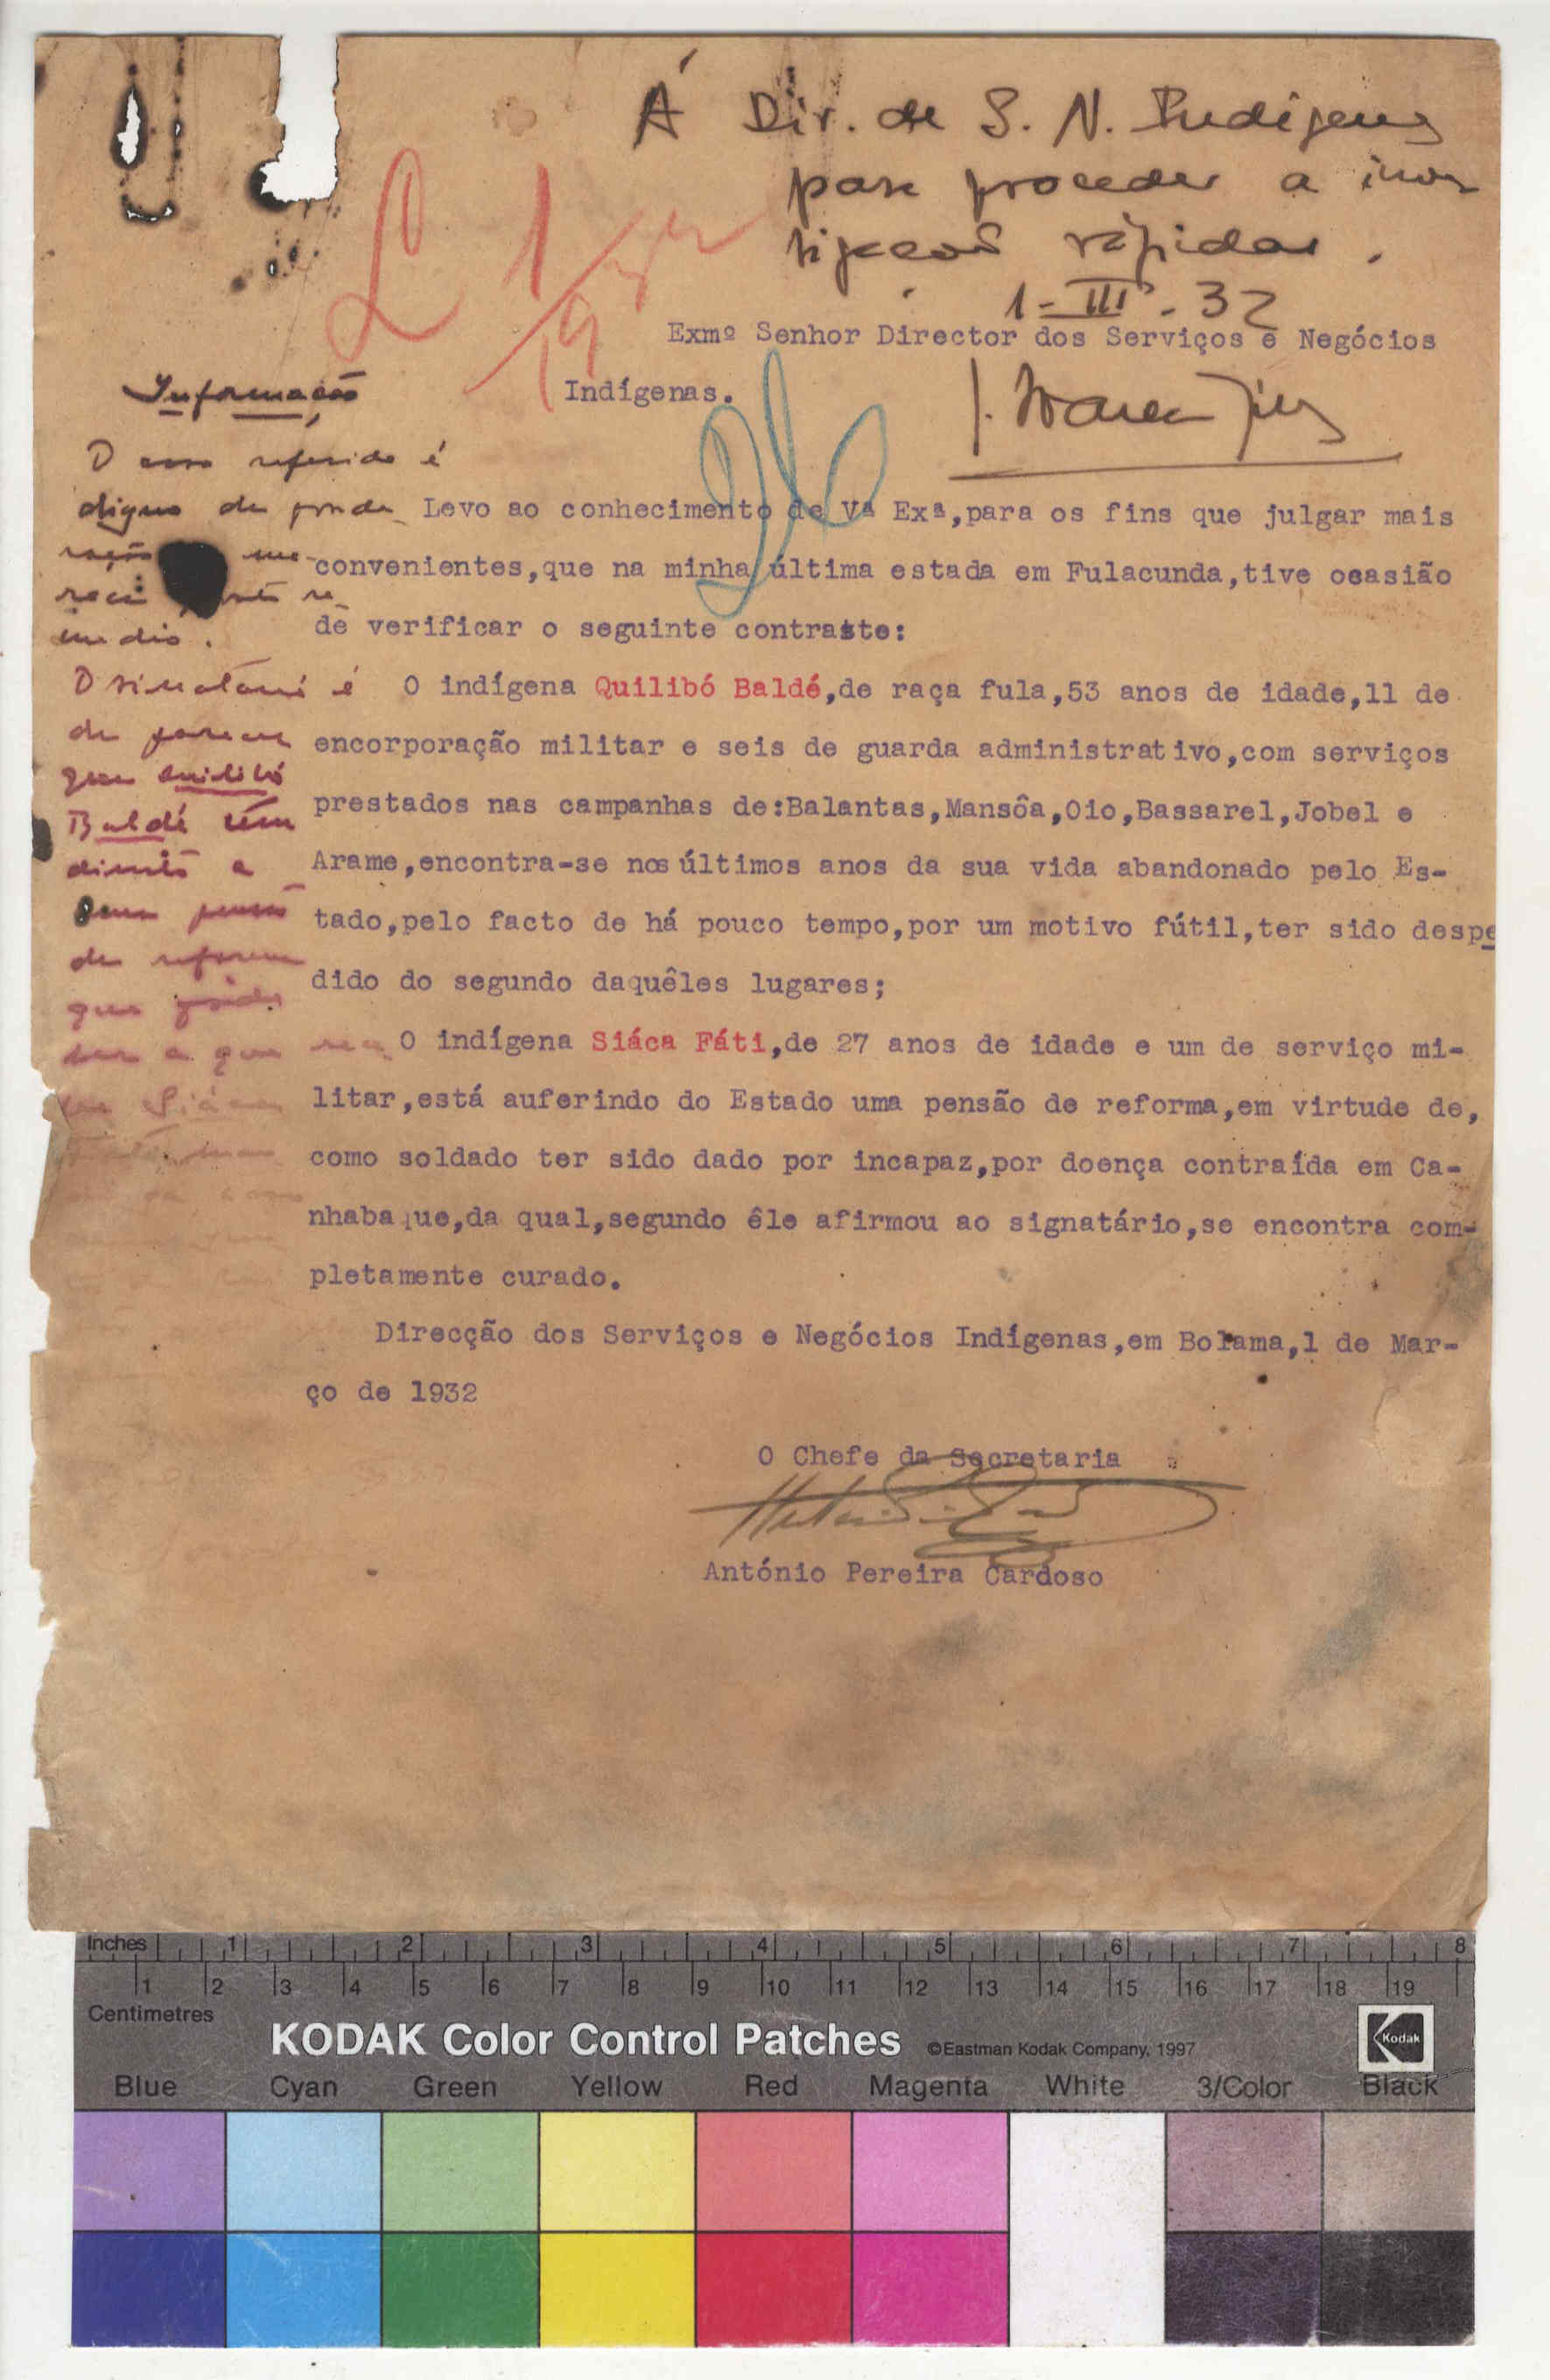 Á Dir. de S. N. Indígenas
para proceder a inves
tigações rápidas.
1-III-32
L 1
Exmº Senhor Director dos Serviços e Negócios
Indígenas.
Informação
O caso referido é
digno de ponde
ração me
rece re
medio.
Levo ao conhecimento de Vª Exª,para os fins que julgar mais
convenientes,que na minha última estada em Fulacunda,tive ocasião
de verificar o seguinte contraste:
O signatário é
de parecer
que Quilibó
Baldé tem
direito a
uma pensão
de reforma
O indígena Quilibó Baldé,de raça fula,53 anos de idade,11 de
encorporação militar e seis de guarda administrativo,com serviços
prestados nas campanhas de:Balantas,Mansôa,Oio,Bassarel,Jobel e
Arame,encontra-se nos últimos anos da sua vida abandonado pelo Es-
tado,pelo facto de há pouco tempo,por um motivo fútil,ter sido despe
dido do segundo daquêles lugares;
O indígena Siáca Fáti,de 27 anos de idade e um de serviço mi-
litar,está auferindo do Estado uma pensão de reforma,em virtude de,
como soldado ter sido dado por incapaz,por doença contraída em Ca-
nhabaque,da qual,segundo êle afirmou ao signatário,se encontra com-
pletamente curado.
Direcção dos Serviços e Negócios Indígenas,em Bolama,1 de Mar-
ço de 1932
O Chefe da Secretaria
António Pereira Cardoso
Inches 1 2 3 4 5 6 7 8
1 2 3 4 5 6 7 8 9 10 11 12 13 14 15 16 17 18 19
Centimetres
KODAK Color Control Patches ©Eastman Kodak Company, 1997 Kodak
Blue Cyan Green Yellow Red Magenta White 3/Color Black